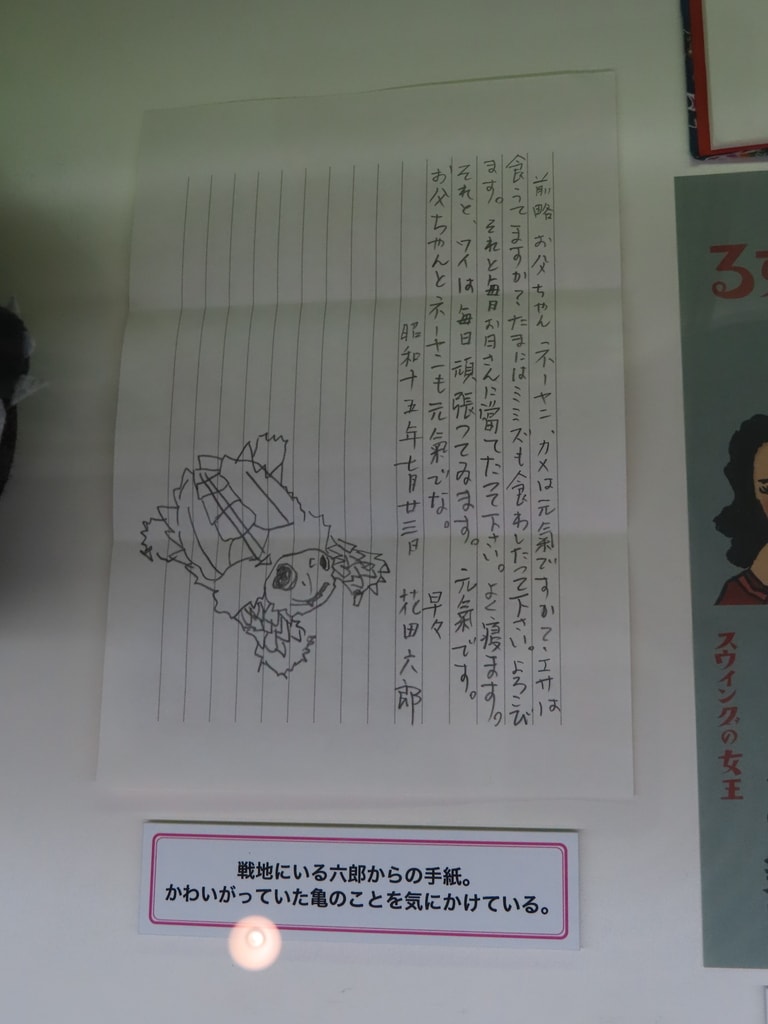 前略 お父ちゃん ネーヤン、カメは元氣ですか？エサは
食うてますか？たまにはミミズも食わしたって下さい。よろこび
ます。それと毎日お日さんに當てたって下さい。よく寝ます。
それと、ワイは毎日頑張つてゐます。元氣です。
お父ちゃんとネーヤンも元氣でな。
早々
昭和十五年七月廿三日 花田六郎
戦地にいる六郎からの手紙。
かわいがっていた亀のことを気にかけている。
スウィングの女王